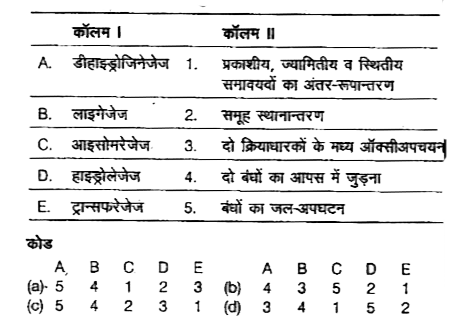 कॉलम I कॉलम II
A. डीहाइड्रोजिनेजेज 1. प्रकाशीय, ज्यामितीय व स्थितीय
समावयदों का अंतर-रूपान्तरण
B. लाइगेजेज 2. समूह स्थानान्तरण
C. आइसोमरेजेज 3. दो क्रियाधारकों के मध्य ऑक्सीअपचयन
D. हाइड्रोलेजेज 4. दो बंधों का आपस में जुड़ना
E. ट्रान्सफरेजेज 5. बंधों का जल-अपघटन
कोड
A B C D E A B C D E
(a) 5 4 1 2 3 (b) 4 3 5 2 1
(c) 5 4 2 3 1 (d) 3 4 1 5 2